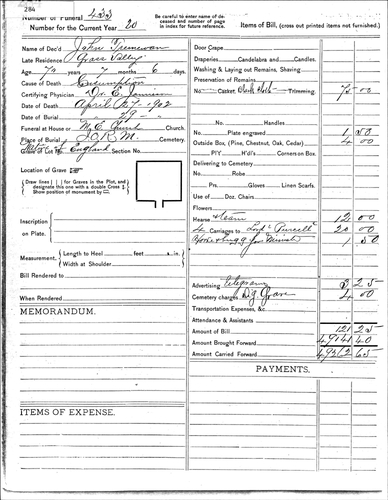 284
Number of Funeral 433
Number for the Current Year 20
Be careful to enter name of deceased and number of page in index for future reference.
Items of Bill, (cross out printed items not furnished.)
Name of Dec'd John Tremewan
Late Residence Grass Valley
Age 72 years 7 months 6 days
Cause of Death
Certifying Physician Dr. E.
Date of Death April 27-1902
Date of Burial " 29 - "
Funeral at House or M. E. Church Church.
Place of Burial I.O.R.M. Cemetery.
Native of England
Grave or Lot No. Section No.
Location of Grave
Draw lines | | | for Graves in the Plot, and designate this one with a double Cross
Show position of monument by
Inscription on Plate.
Measurement. Length to Heel feet in.
Width at Shoulder
Bill Rendered to
When Rendered
MEMORANDUM.
ITEMS OF EXPENSE.
Door Crape
Draperies Candelabra and Candles.
Washing & Laying out Remains, Shaving
Preservation of Remains
No. Casket, Black Cloth Trimming, 75 00
No. Handles
Plate engraved 1 50
Outside Box, (Pine, Chestnut, Oak, Cedar) 4 00
P'I'Y H'd's Corners on Box.
Delivering to Cemetery
No. Robe
Prs. Gloves Linen Scarfs.
Use of Doz. Chairs
Flowers
Hearse team 12 00
4 Carriages to 20 00
1 50
Advertising telegram 3 25
Cemetery charges Dig Grave 4 00
Transportation Expenses, &c.
Attendance & Assistants
Amount of Bill 121 25
Amount Brought Forward 49141 40
Amount Carried Forward 49262 65
PAYMENTS.